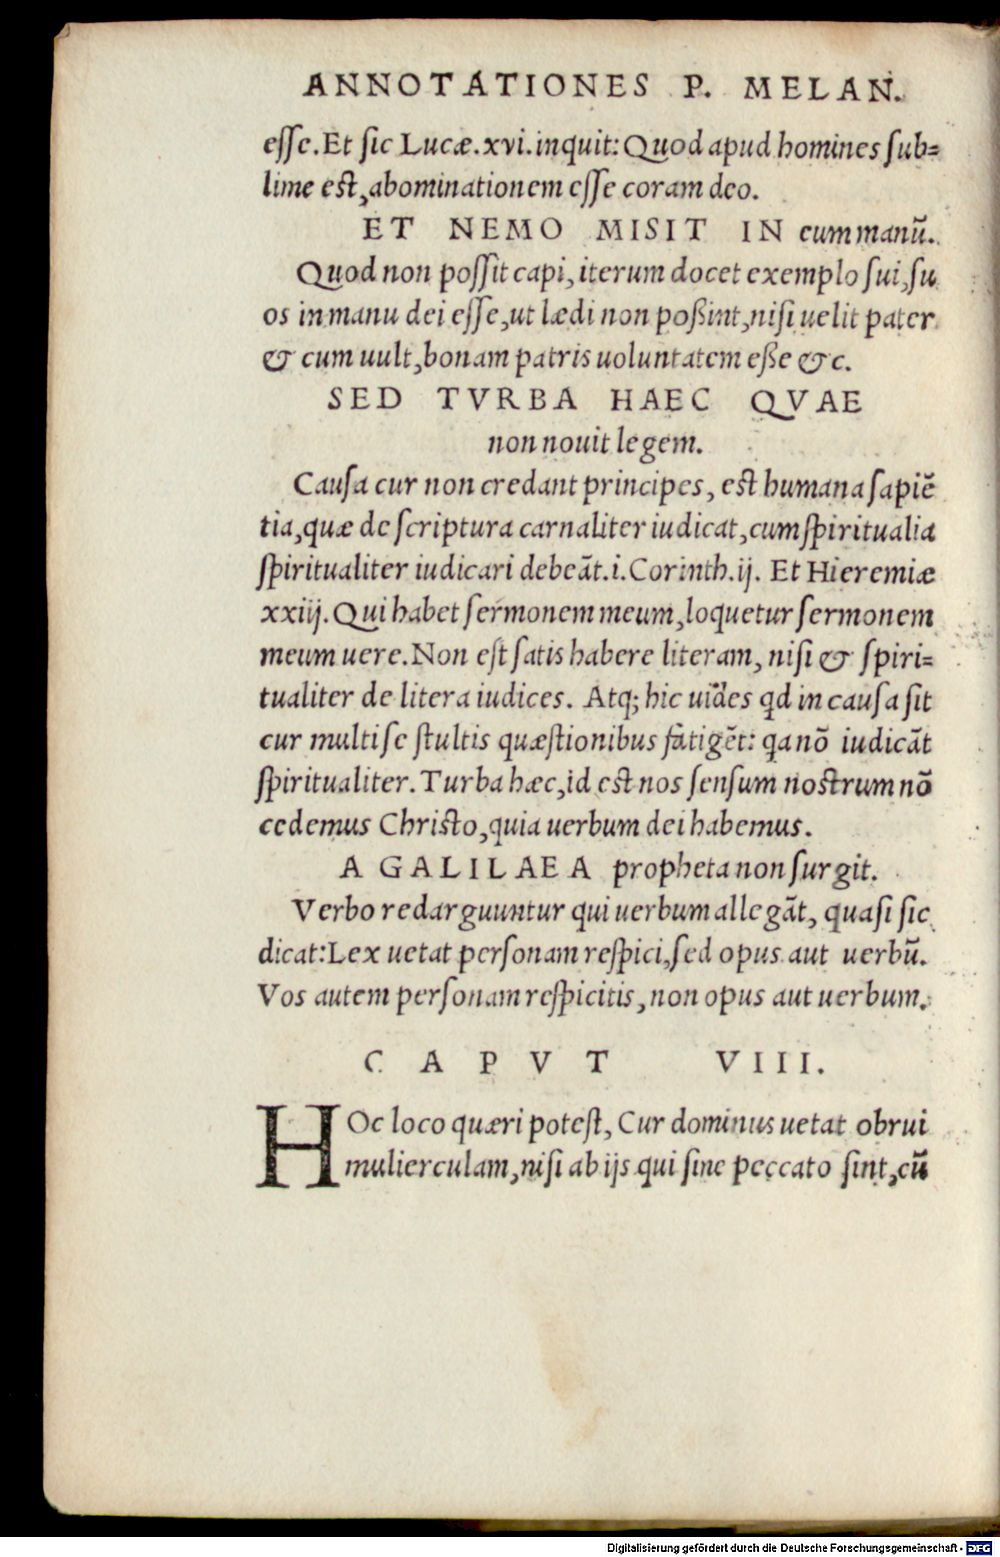 ANNOTATIONES P. MELAN.
esse. Et sic Lucæ. xvi. inquit: Quod apud homines sub-
lime est, abominationem esse coram deo.
ET NEMO MISIT IN eum manū.
Quod non possit capi, iterum docet exemplo sui, su
os in manu dei esse, ut lædi non poßint, nisi uelit pater
& cum uult, bonam patris uoluntatem eße &c.
SED TVRBA HAEC QVAE
non nouit legem.
Causa cur non credant principes, est humana sapiē
tia, quæ de scriptura carnaliter iudicat, cum spiritualia
spiritualiter iudicari debeāt. i. Corinth. ij. Et Hieremiæ
xxiij. Qui habet sermonem meum, loquetur sermonem
meum uere. Non est satis habere literam, nisi & spiri-
tualiter de litera iudices. Atq; hic uides qd in causa sit
cur multi se stultis quæstionibus fatigēt: qa nō iudicāt
spiritualiter. Turba hæc, id est nos sensum nostrum nō
cedemus Christo, quia uerbum dei habemus.
A GALILAEA propheta non surgit.
Verbo redarguuntur qui uerbum allegāt, quasi sic
dicat: Lex uetat personam respici, sed opus aut uerbū.
Vos autem personam respicitis, non opus aut uerbum.
CAPVT VIII.
HOc loco quæri potest, Cur dominus uetat obrui
mulierculam, nisi ab ijs qui sine peccato sint, cū
Digitalisierung gefördert durch die Deutsche Forschungsgemeinschaft - DFG